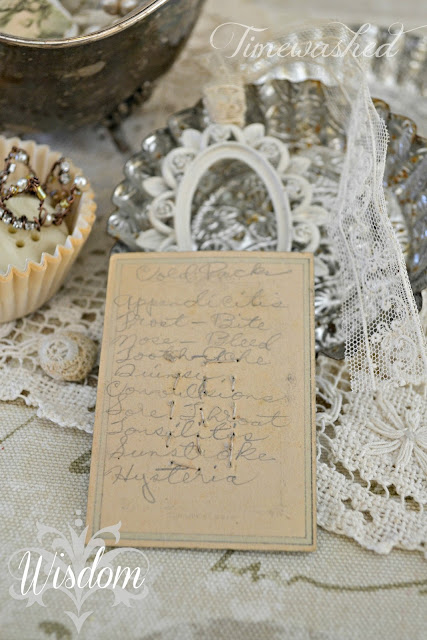 Timewashed
Cold Packs
Appendicites
Frost-Bite
Nose-Bleed
Toothache
Convulsions
Sore Throat
Tonsilitis
Sunstroke
Hysteria
Wisdom